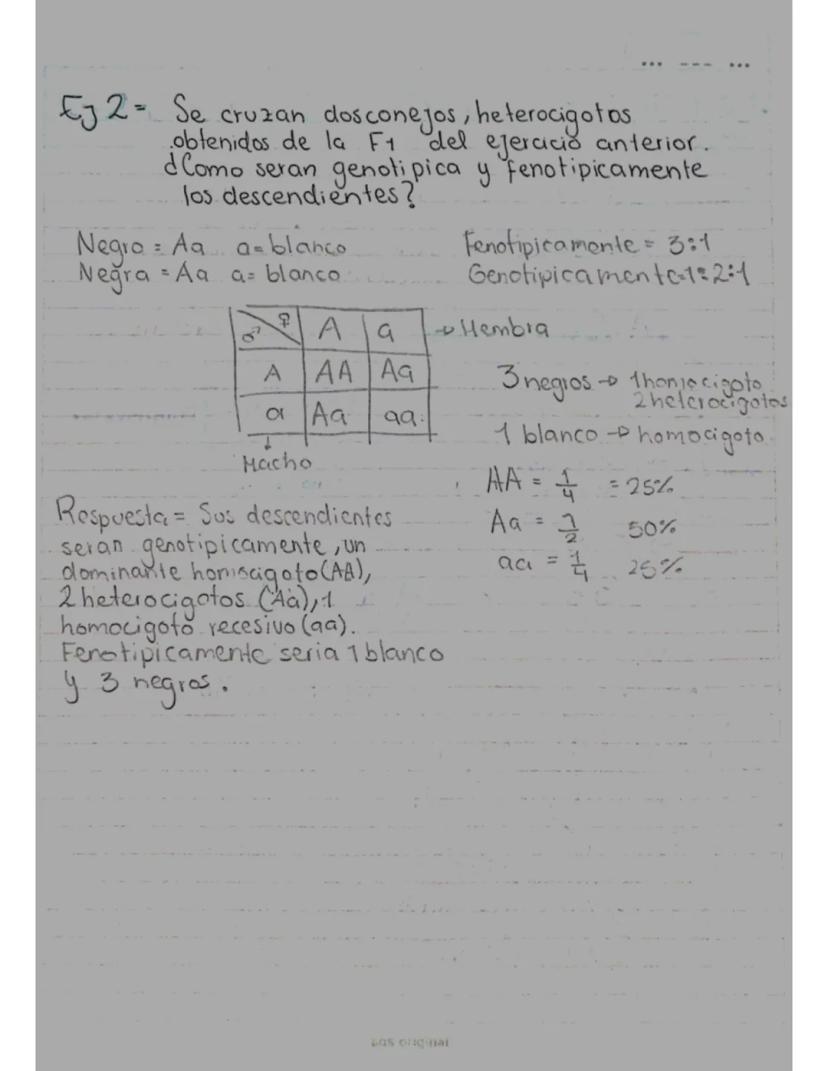 ... --- ...
Ej 2= Se cruzan dosconejos, heterocigotos
obtenidos de la F1 del ejercicio anterior.
¿Como seran genotipica y fenotipicamente
los descendientes?
Negro = Aa a= blanco
Negra = Aa a= blanco
Fenotipicamente = 3:1
Genotipicamente=1:2:1
♂ ♀ A a → Hembra
A AA Aa
a Aa aa
Macho
3 negros → 1 homocigoto
2 heterocigotos
1 blanco → homocigoto
AA = 1/4 = 25%
Aa = 1/2 50%
aa = 1/4 25%
Respuesta = Sus descendientes
seran genotipicamente, un
dominante homocigoto (AA),
2 heterocigotos (Aa), 1
homocigoto recesivo (aa).
Fenotipicamente seria 1 blanco
y 3 negros.